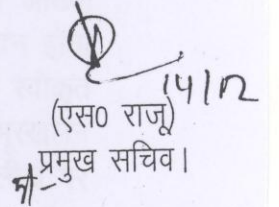 14/12
(एस0 राजू)
प्रमुख सचिव।